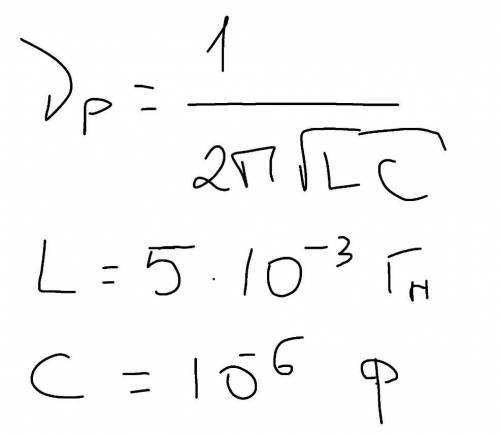 νр = 1 / 2π√LC
L = 5 · 10⁻³ Гн
C = 10⁻⁶ Ф